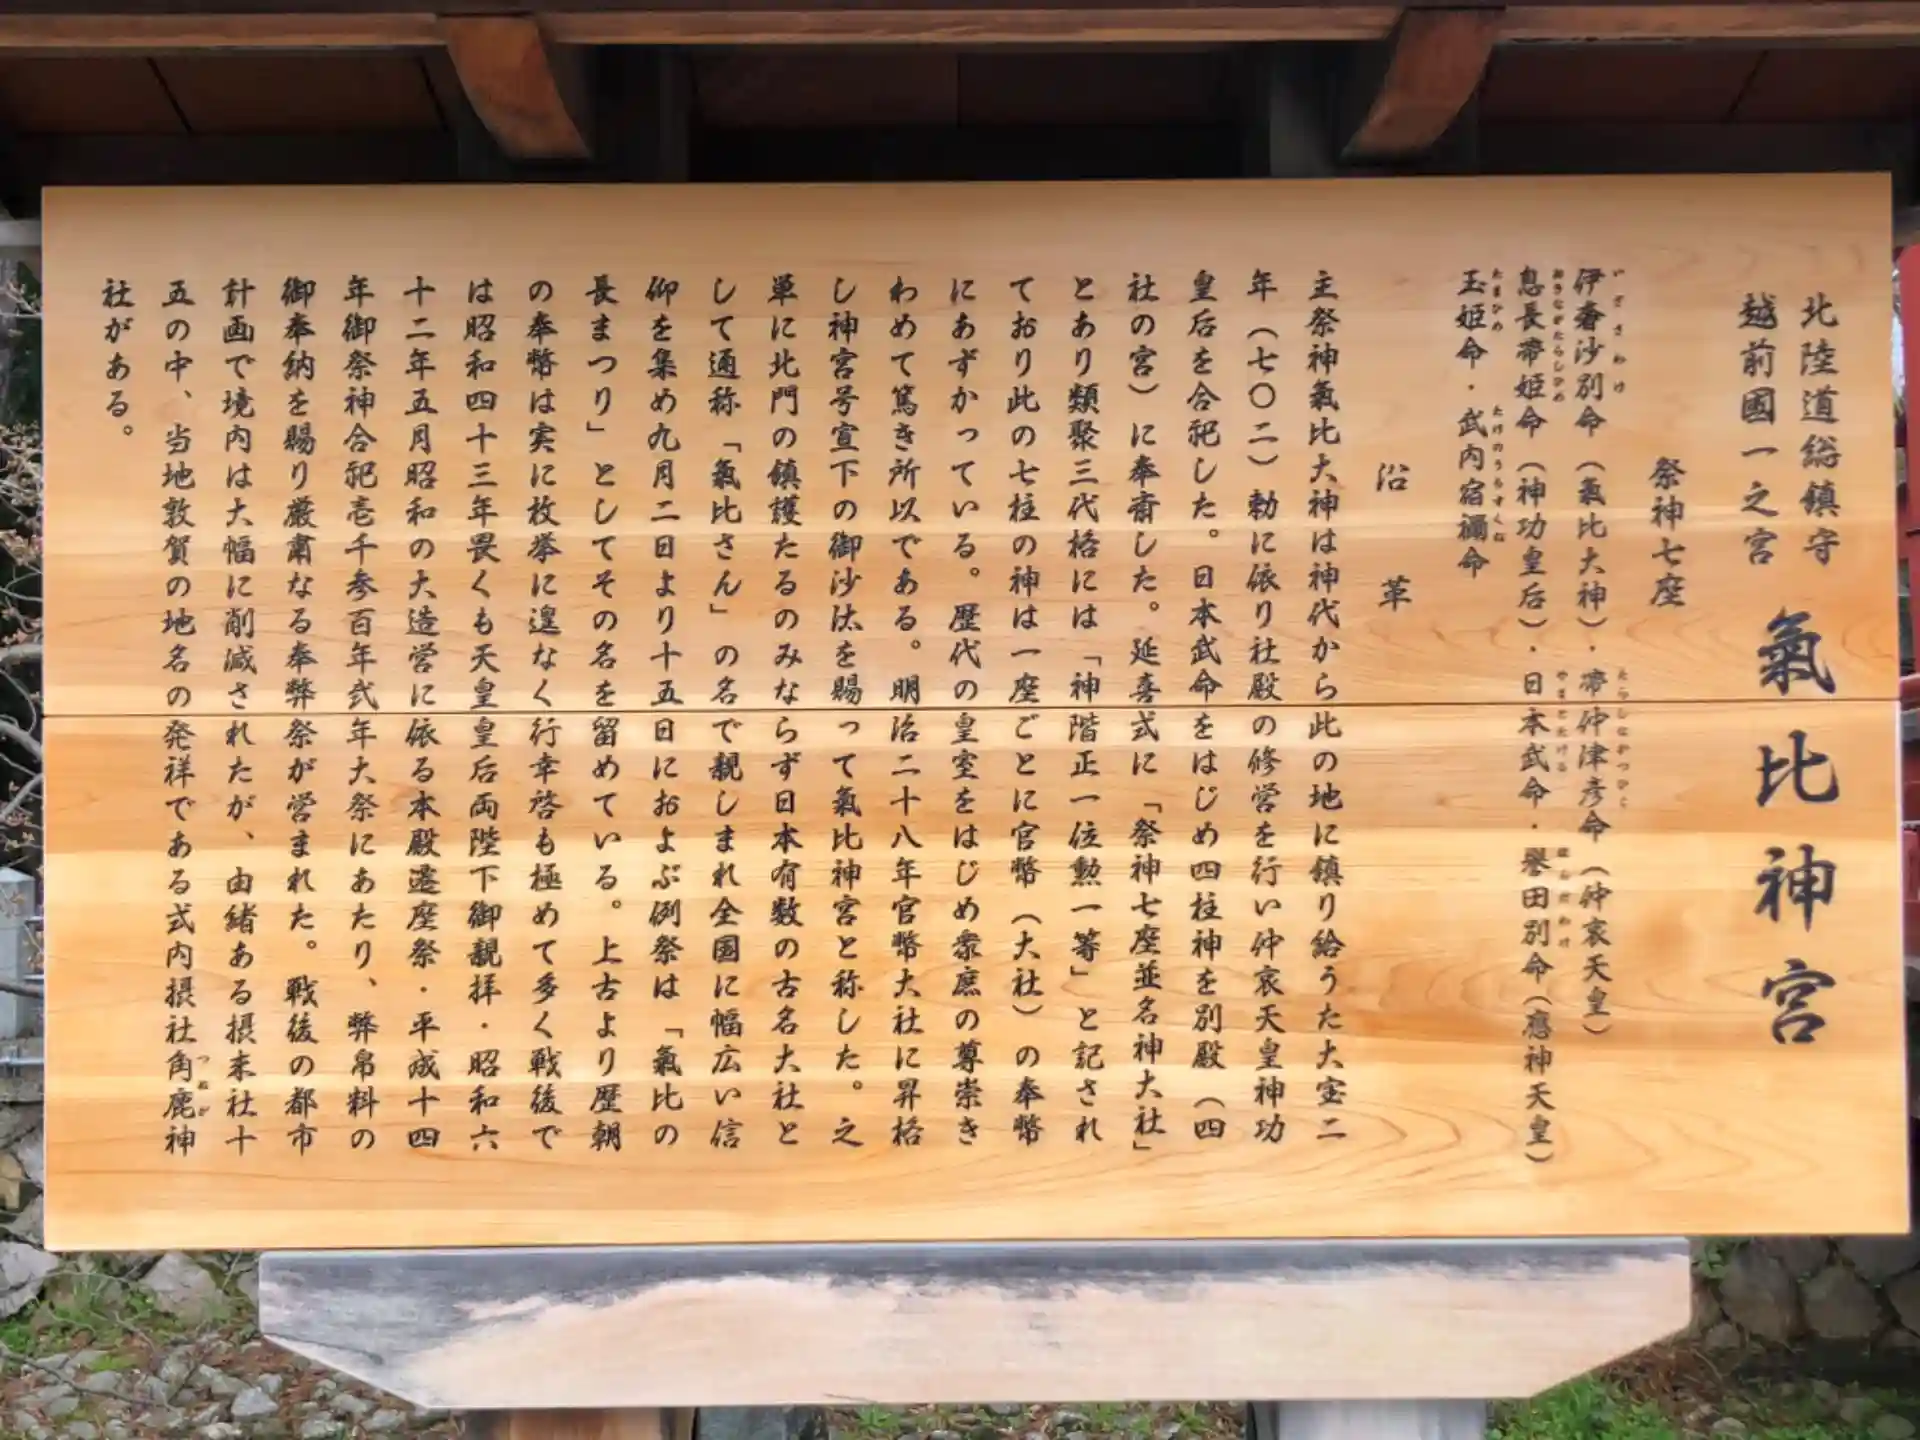 北陸道総鎮守
越前國一之宮
氣比神宮
祭神七座
伊奢沙別命（氣比大神）・帯仲津彦命（仲哀天皇）
いざさわけ
たらしなかつひこ
息長帯姫命（神功皇后）・日本武命・誉田別命（應神天皇）
おきながたらしひめ
やまとたける
ほんだわけ
玉姫命・武内宿禰命
たまひめ
たけのうちすくね
沿革
主祭神氣比大神は神代から此の地に鎮り給うた大宝二
年（七〇二）勅に依り社殿の修営を行い仲哀天皇神功
皇后を合祀した。日本武命をはじめ四柱神を別殿（四
社の宮）に奉斎した。延喜式に「祭神七座並名神大社」
とあり類聚三代格には「神階正一位勲一等」と記され
ており此の七柱の神は一座ごとに官幣（大社）の奉幣
にあずかっている。歴代の皇室をはじめ衆庶の尊崇き
わめて篤き所以である。明治二十八年官幣大社に昇格
し神宮号宣下の御沙汰を賜って氣比神宮と称した。之
単に北門の鎮護たるのみならず日本有数の古名大社と
して通称「氣比さん」の名で親しまれ全国に幅広い信
仰を集め九月二日より十五日におよぶ例祭は「氣比の
長まつり」としてその名を留めている。上古より歴朝
の奉幣は実に枚挙に遑なく行幸啓も極めて多く戦後で
は昭和四十三年畏くも天皇皇后両陛下御親拝・昭和六
十二年五月昭和の大造営に依る本殿遷座祭・平成十四
年御祭神合祀壱千参百年式年大祭にあたり、幣帛料の
御奉納を賜り厳粛なる奉幣祭が営まれた。戦後の都市
計画で境内は大幅に削減されたが、由緒ある摂末社十
五の中、当地敦賀の地名の発祥である式内摂社角鹿神
つぬが
社がある。